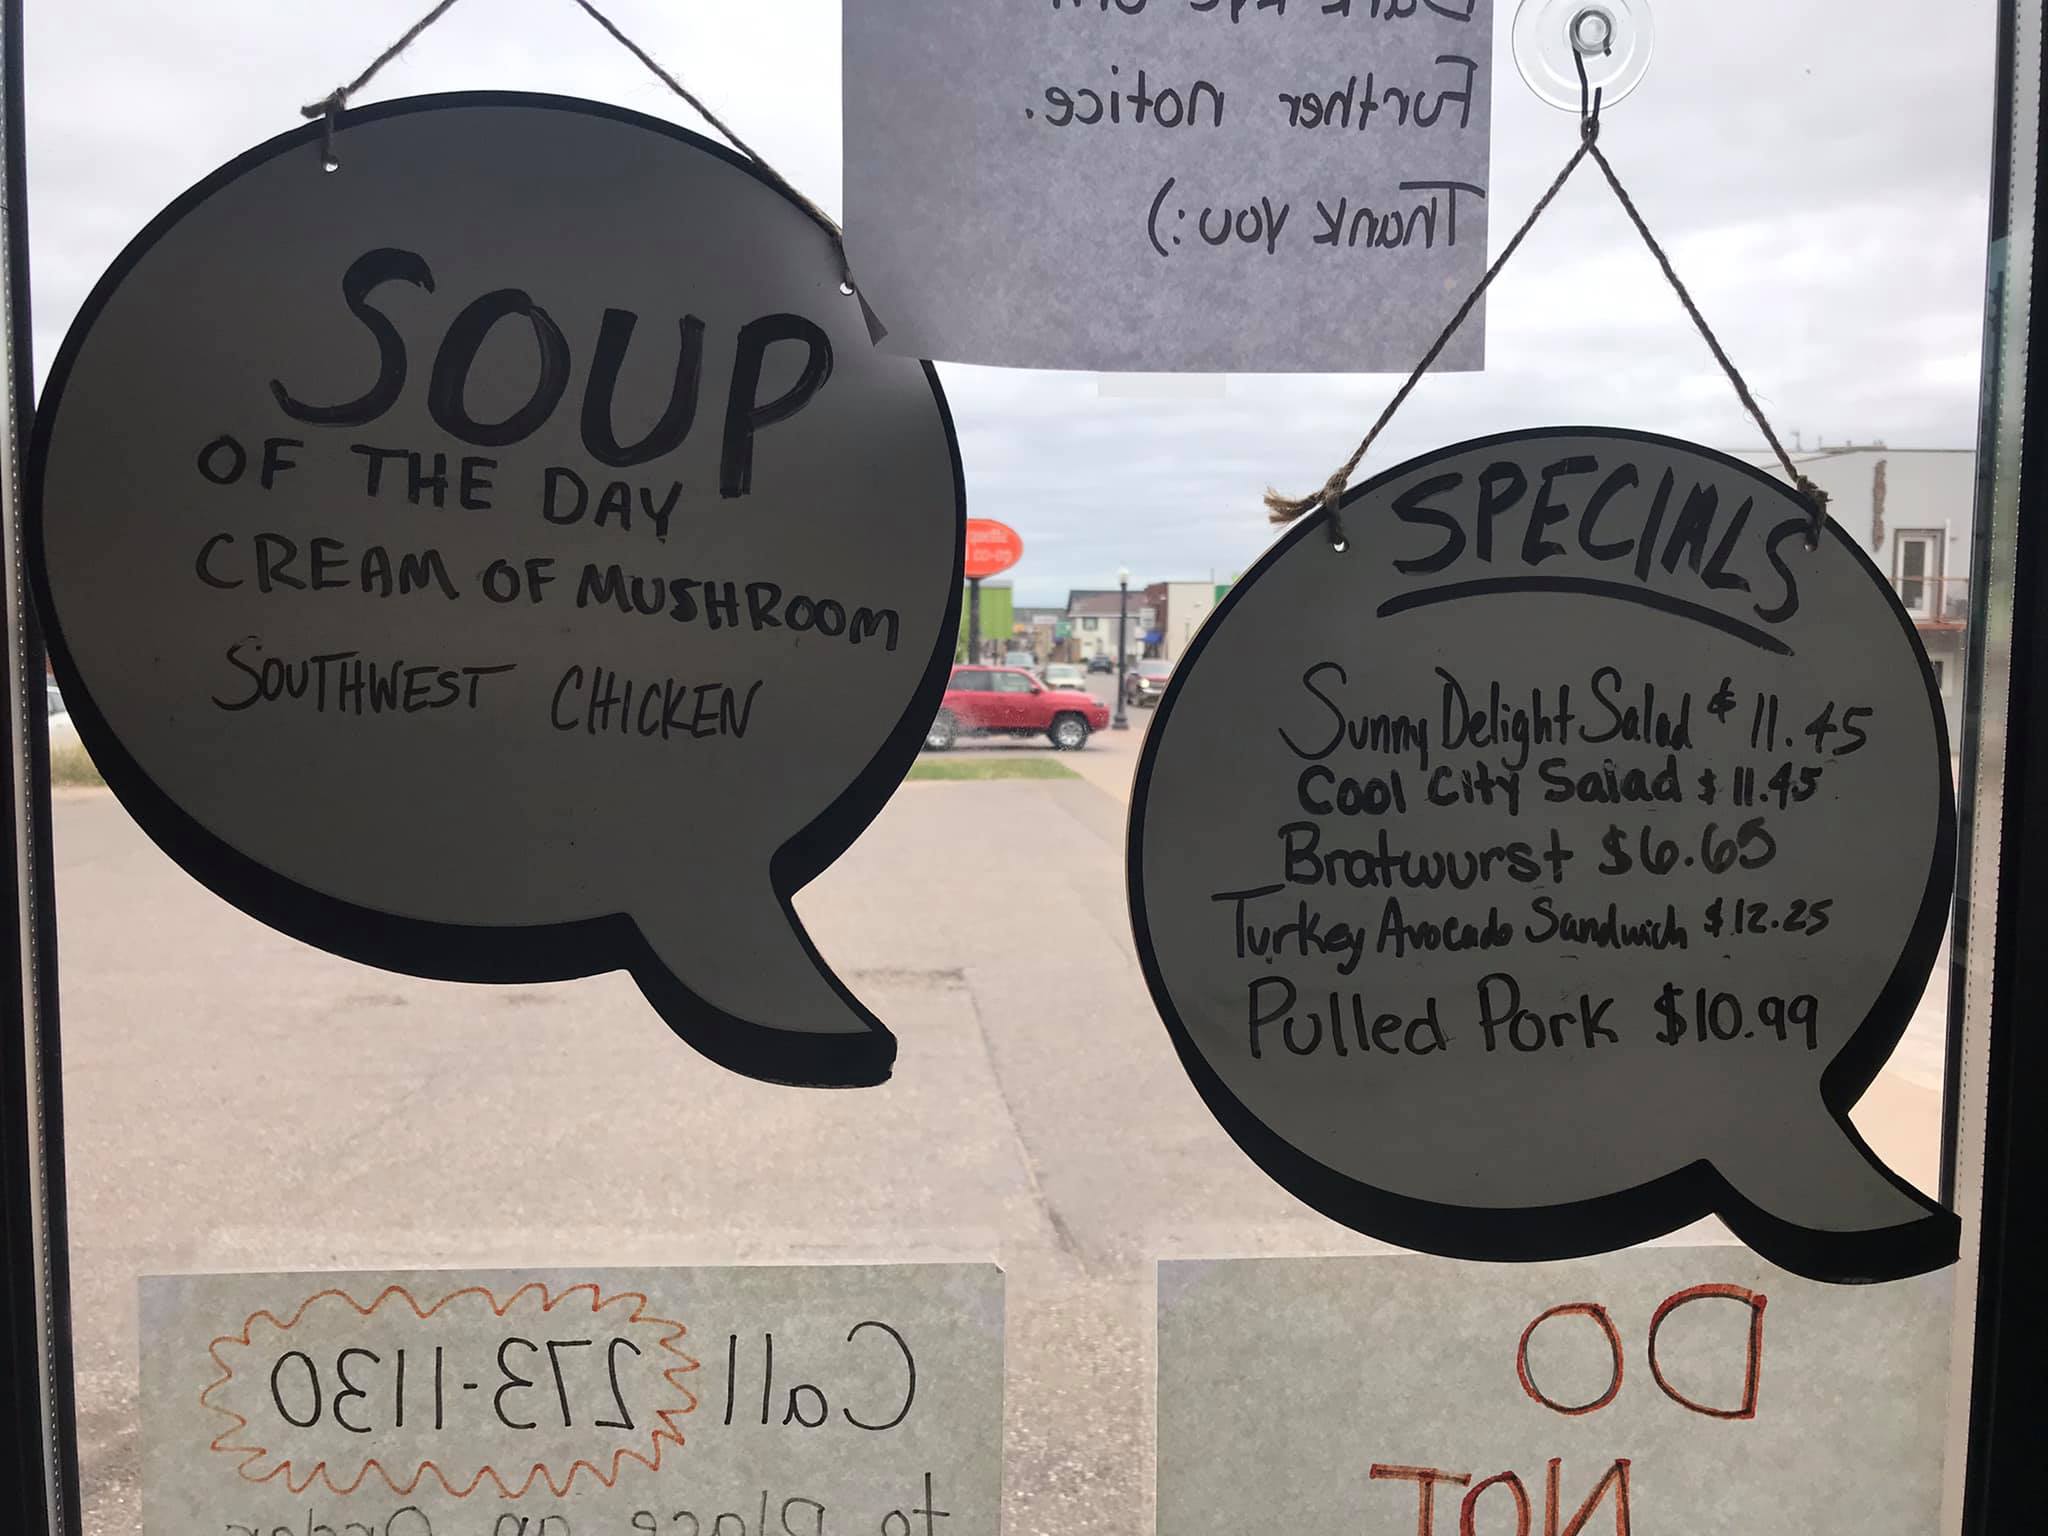 Further notice.
Thank you :)
SOUP
OF THE DAY
CREAM OF MUSHROOM
SOUTHWEST CHICKEN
SPECIALS
Sunny Delight Salad $11.45
Cool City Salad $11.45
Bratwurst $6.65
Turkey Avocado Sandwich $12.25
Pulled Pork $10.99
Call 273-1130
to Place an Order
DO
NOT